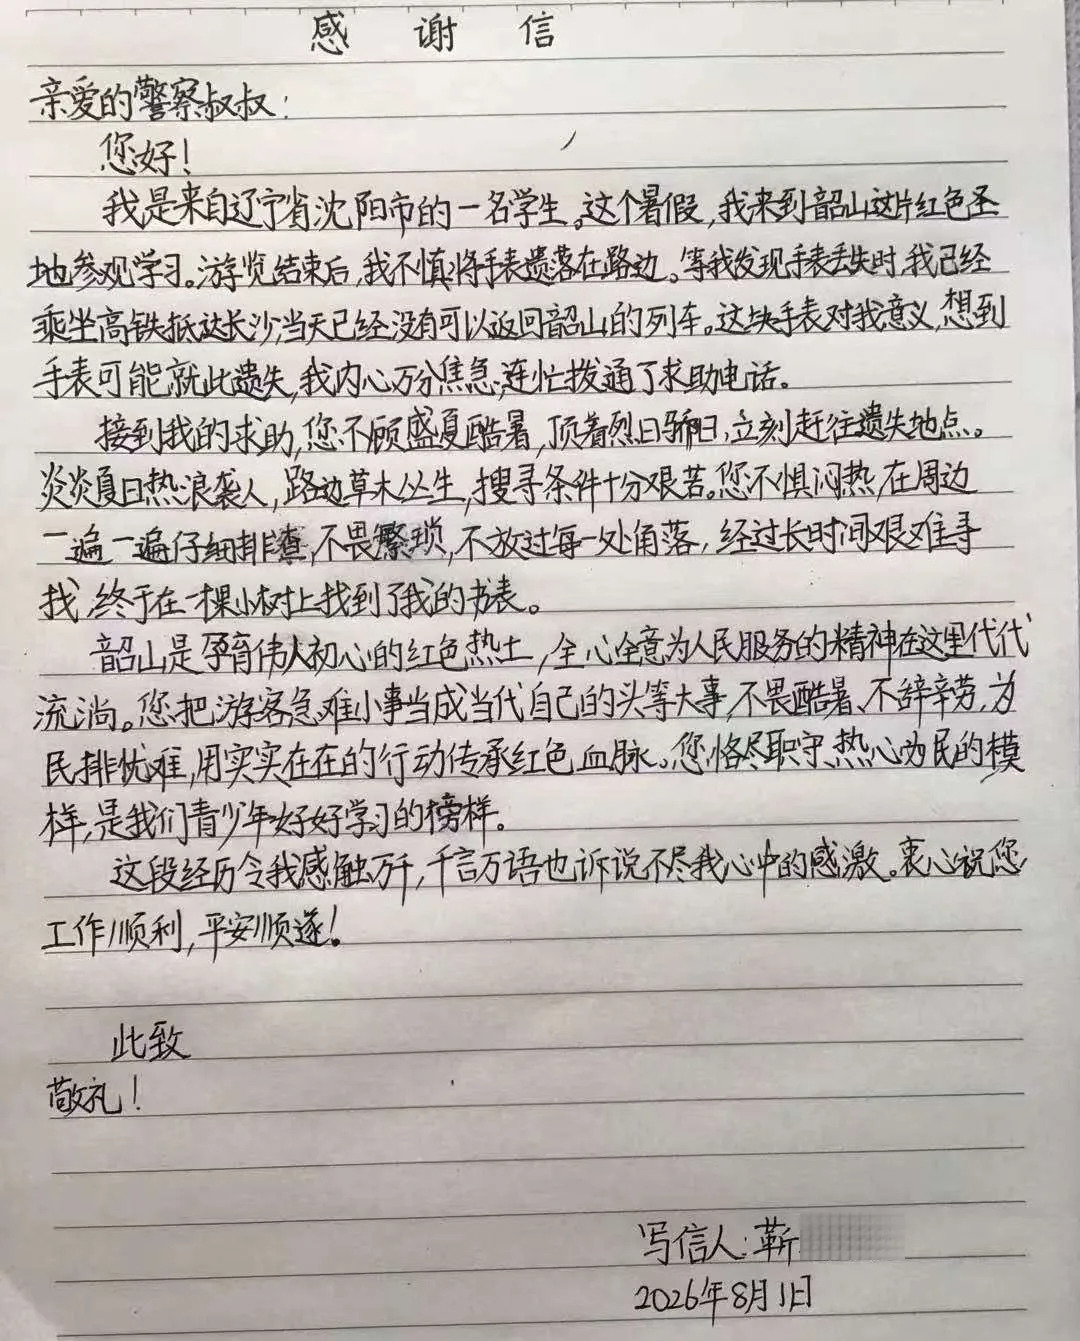 感谢信
亲爱的警察叔叔：
您好！
我是来自辽宁省沈阳市的一名学生。这个暑假，我来到韶山这片红色圣
地参观学习。游览结束后，我不慎将手表遗落在路边。等我发现手表丢失时，我已经
乘坐高铁抵达长沙，当天已经没有可以返回韶山的列车。这块手表对我意义，想到
手表可能就此遗失，我内心万分焦急，连忙拨通了求助电话。
接到我的求助，您不顾盛夏酷暑，顶着烈日骄日，立刻赶往遗失地点。
炎炎夏日热浪袭人，路边草木丛生，搜寻条件十分艰苦。您不惧闷热，在周边
一遍一遍仔细排查，不畏繁琐，不放过每一处角落，经过长时间艰难寻
找，终于在一棵小树上找到了我的手表。
韶山是孕育伟人初心的红色热土，全心全意为人民服务的精神在这里代代
流淌。您把游客急难小事当成当代自己的头等大事，不畏酷暑、不辞辛劳，为
民排忧难，用实实在在的行动传承红色血脉。您恪尽职守、热心为民的模
样，是我们青少年好好学习的榜样。
这段经历令我感触万千，千言万语也诉说不尽我心中的感激。衷心祝您
工作顺利，平安顺遂！
此致
敬礼！
写信人：靳
2026年8月1日